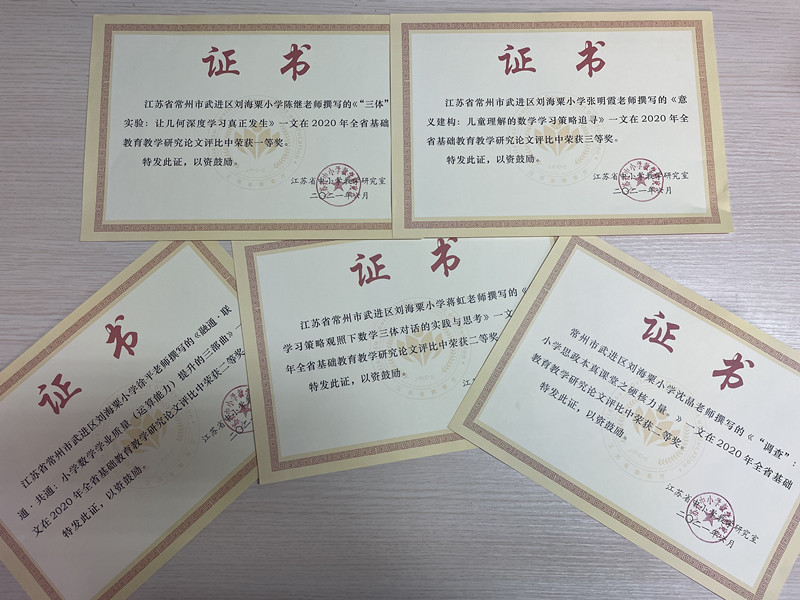 证 书
江苏省常州市武进区刘海粟小学陈继老师撰写的《“三体”
实验：让几何深度学习真正发生》一文在2020年全省基础
教育教学研究论文评比中荣获一等奖。
特发此证，以资鼓励。
江苏省中小学教学研究室
二〇二一年六月
证 书
江苏省常州市武进区刘海粟小学张明霞老师撰写的《意
义建构：儿童理解的数学学习策略追寻》一文在2020年全
省基础教育教学研究论文评比中荣获三等奖。
特发此证，以资鼓励。
江苏省中小学教学研究室
二〇二一年六月
证 书
江苏省常州市武进区刘海粟小学徐平老师撰写的《融通·联
通·共通：小学数学学业质量（运算能力）提升的三部曲》一
文在2020年全省基础教育教学研究论文评比中荣获二等奖
特发此证，以资鼓励。
江苏省
二〇二
证 书
江苏省常州市武进区刘海粟小学蒋虹老师撰写的《
学习策略观照下数学三体对话的实践与思考》一文
年全省基础教育教学研究论文评比中荣获二等奖
特发此证，以资鼓励。
江
二
证 书
常州市武进区刘海粟小学沈晶老师撰写的《“调查”：
小学思政本真课堂之硬核力量。》一文在2020年全省基础
教育教学研究论文评比中荣获二等奖。
特发此证，以资鼓励。
江苏省中小学教学研究室
二〇二一年六月